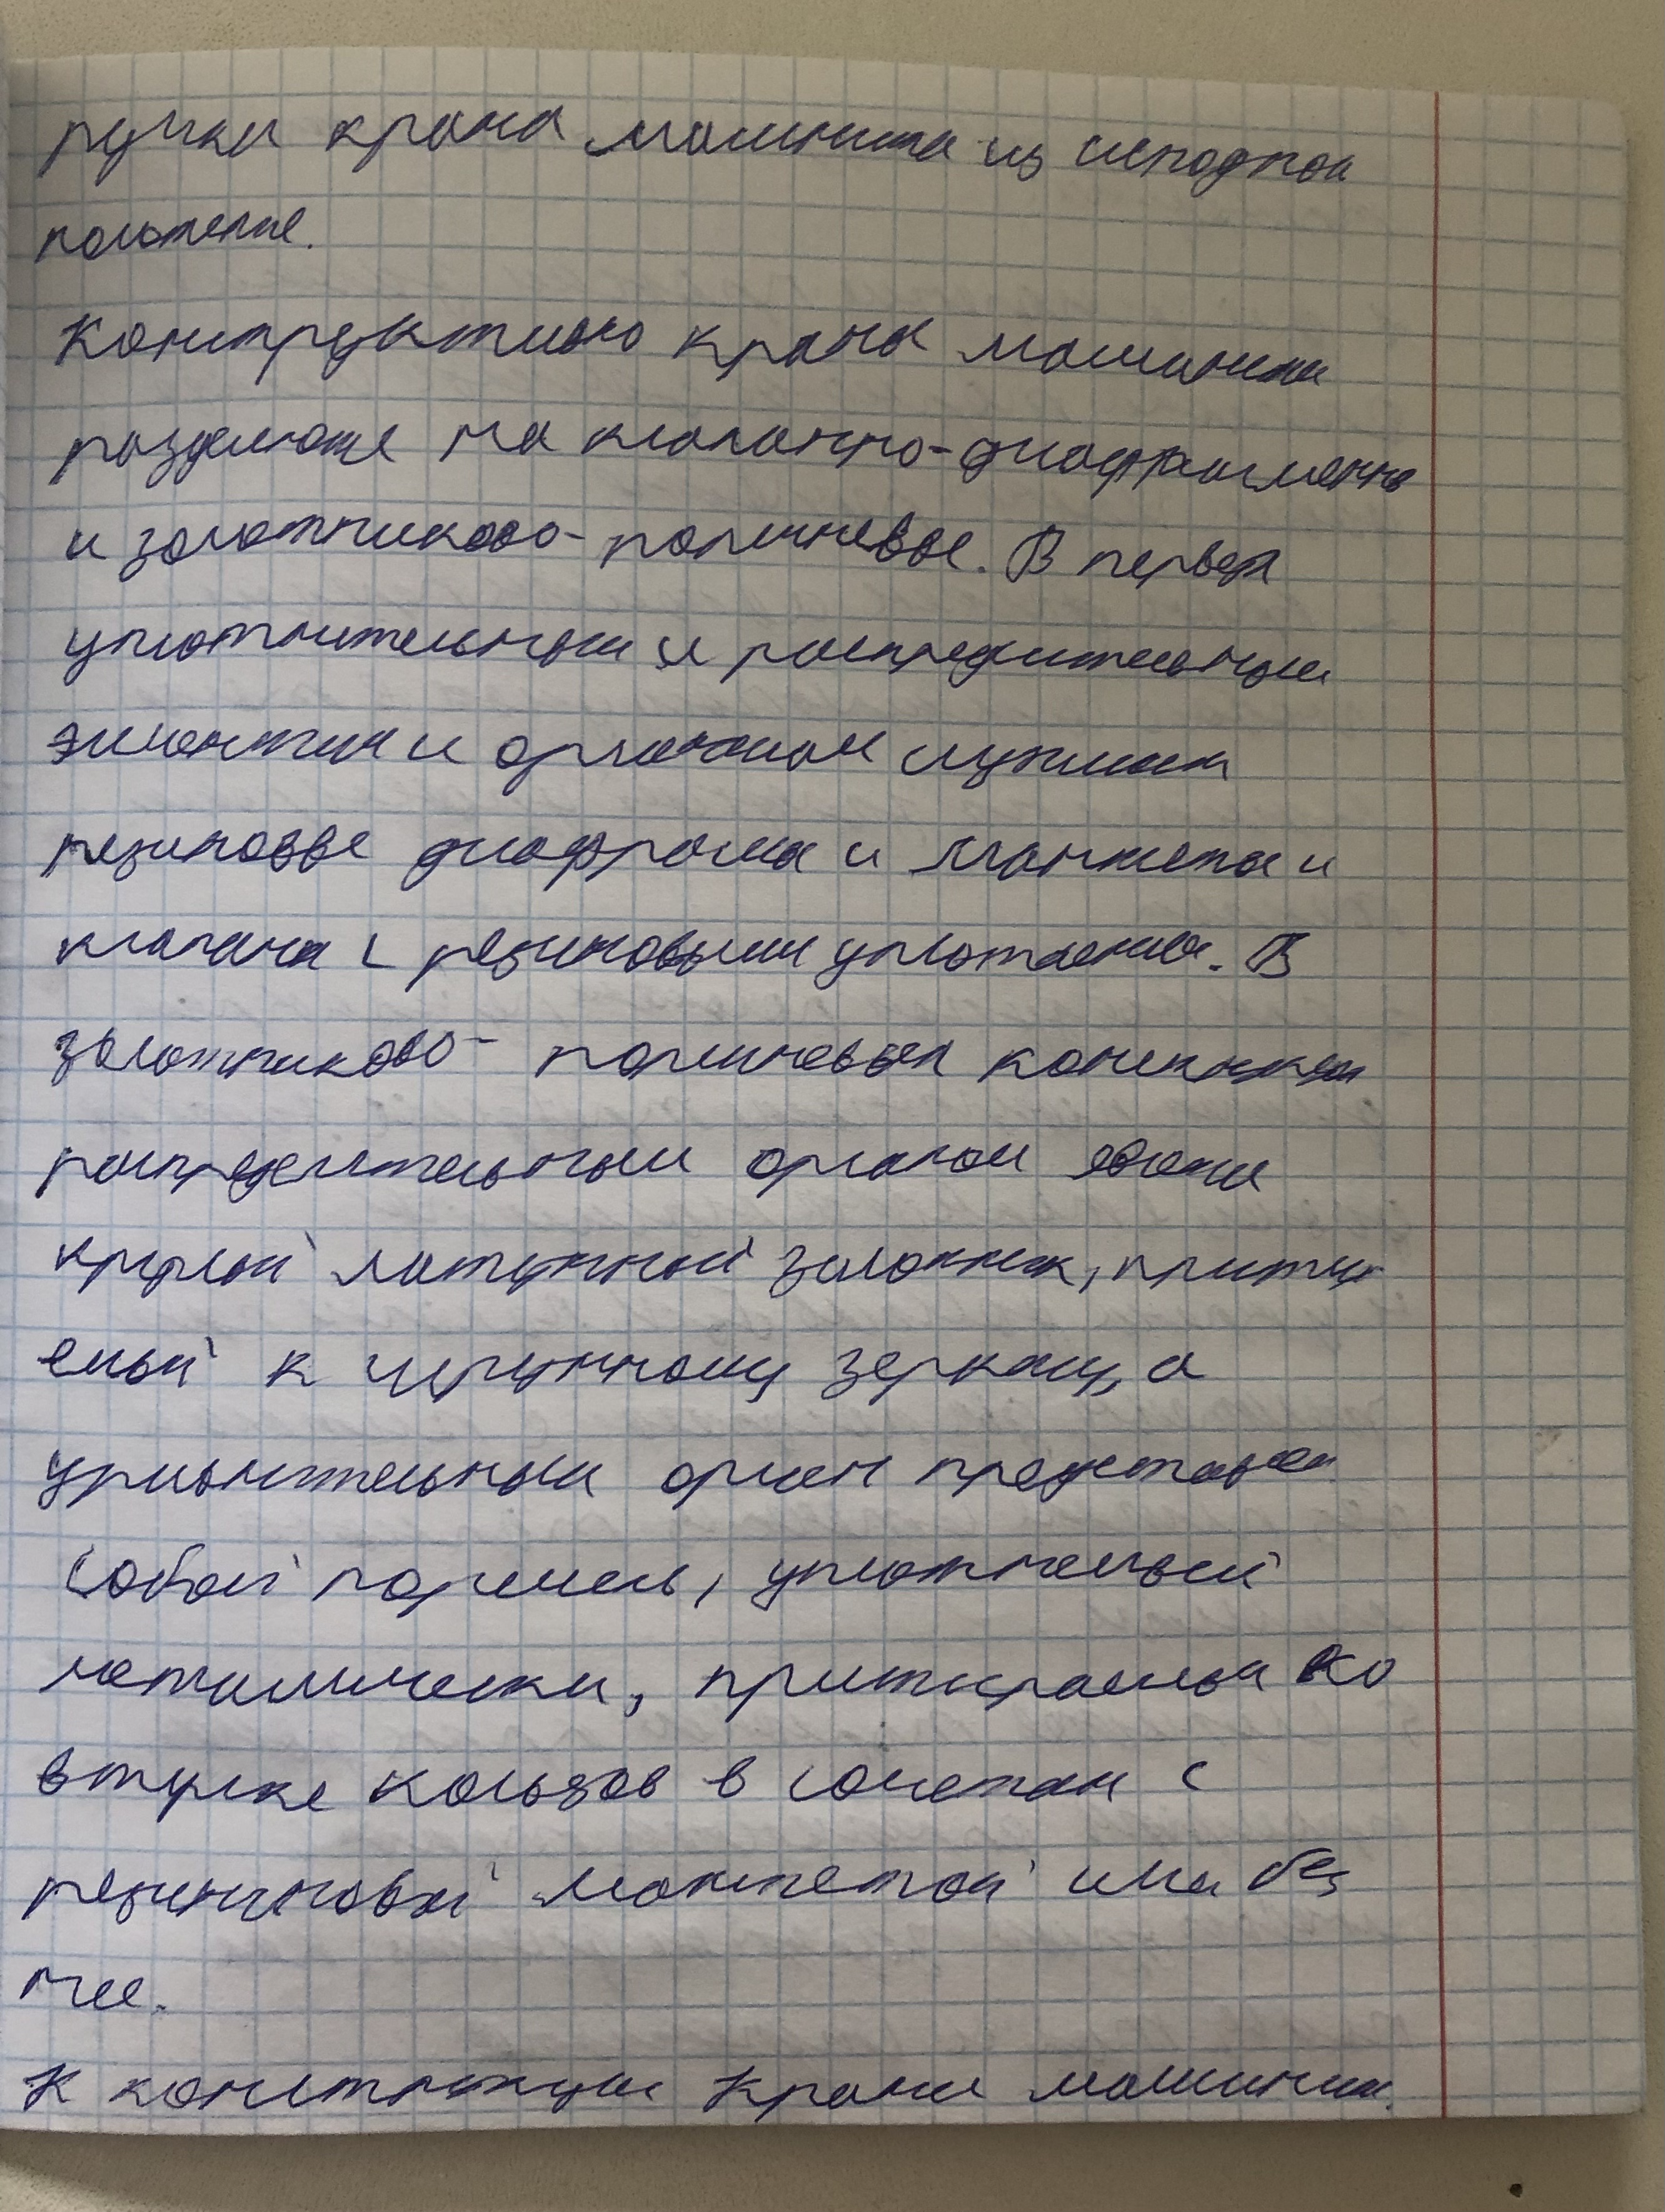 ручки крана машиниста из исходной
положение.
Конструктивно крана машиниста
разделяют на клапанно-диафрагменно
и золотниково-поршневые. В первой
уплотнительным и распределительным
элементам и органам служат
резиновые диафрагма и манжета и
клапана с резиновыми уплотнения. В
золотниково- поршневых
распределительным органом
круглый латунный золотник, притир
емый к чугунному зеркалу, а
орган представляет
собой поршень, уплотняемый
металлически, притираемый ко
втулке кольцов в сочетан с
резиновой манжетой или без
нее.
К конструкции крана машиниста.